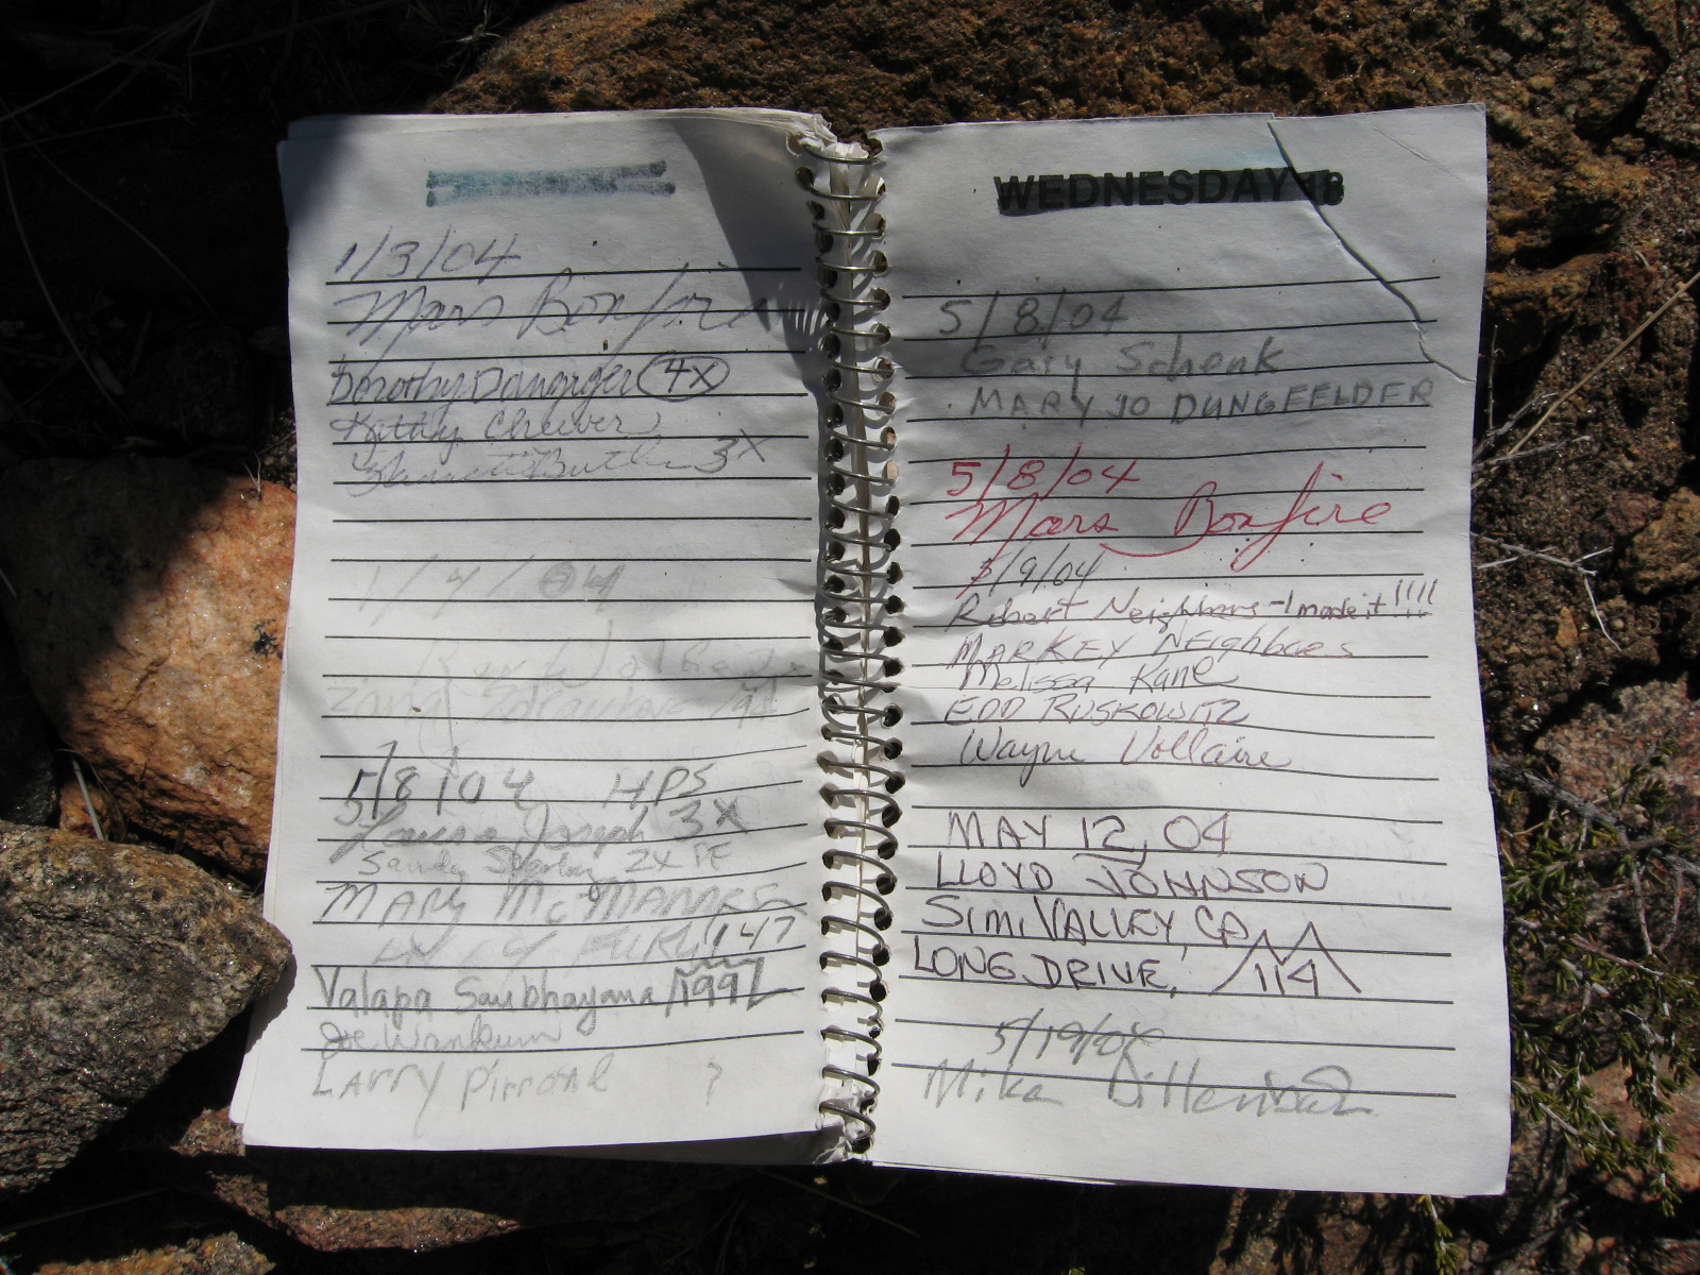 1/3/04
Mars Bonfire
Dorothy Danziger 4X
Kathy Cheever
3X
1/4/04
5/8/04 HPS
Louise Joseph 3X
Sandy 2X PE
MARY McMANNES
147
Valapa Saubhayana 199
Joe Wankum
LARRY
?
WEDNESDAY
5/8/04
Gary Schenk
MARY JO DUNGFELDER
5/8/04
Mars Bonfire
5/9/04
Robert Neighbors - I made it!!!!
MARKEY NEighbors
Melissa Kane
EDD RUSKOWITZ
Wayne Vollaire
MAY 12, 04
LLOYD JOHNSON
SIMI VALLEY, CA
LONG DRIVE, 114
5/19/04
Mike